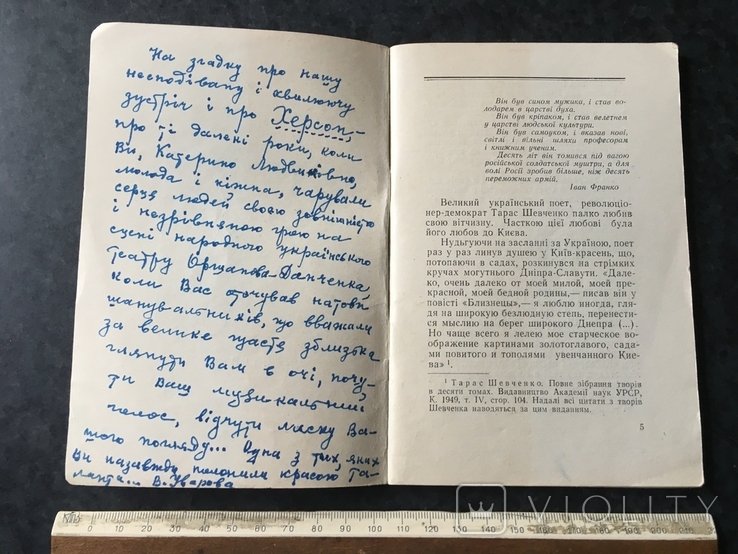 На згадку про нашу
несподівану і хвилюючу
зустріч і про Херсон,
про ті далекі роки, коли
Ви, Катерино Людвиківно,
молода і ніжна, чарували
серця людей своєю зовнішністю
і незрівняною грою на
сцені народного українського
театру
коли Вас оточував натовп
шанувальників, що вважали
за велике щастя зблизька
глянути Вам в очі, почу-
ти Ваш музикальний
голос, відчути ласку Ва-
шого погляду... Одна з тих, яких
Ви назавжди полонили красою та-
ланта... В. Уварова
Він був сином мужика, і став во-
лодарем в царстві духа.
Він був кріпаком, і став велетнем
у царстві людської культури.
Він був самоуком, і вказав нові,
світлі і вільні шляхи професорам
і книжним ученим.
Десять літ він томився під вагою
російської солдатської муштри, а для
волі Росії зробив більше, ніж десять
переможних армій.
Іван Франко
Великий український поет, революціо-
нер-демократ Тарас Шевченко палко любив
свою вітчизну. Часткою цієї любові була
його любов до Києва.
Нудьгуючи на засланні за Україною, поет
раз у раз линув душею у Київ-красень, що,
потопаючи в садах, розкинувся на стрімких
кручах могутнього Дніпра-Славути. «Дале-
ко, очень далеко от моей милой, моей пре-
красной, моей бедной родины,— писав він у
повісті «Близнецы»,— я люблю иногда, гля-
дя на широкую безлюдную степь, перенести-
ся мыслию на берег широкого Днепра (...).
Но чаще всего я лелею мое старческое во-
ображение картинами золотоглавого, сада-
ми повитого и тополями увенчанного Кие-
ва» ¹.
¹ Тарас Шевченко. Повне зібрання творів
в десяти томах. Видавництво Академії наук УРСР,
К. 1949, т. IV, стор. 104. Надалі всі цитати з творів
Шевченка наводяться за цим виданням.
5
VIOLITY